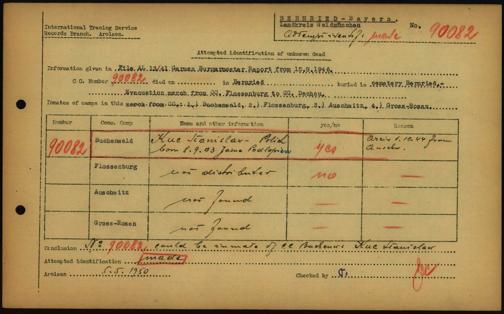 International Tracing Service
Records Branch. Arolsen.
BERNRIED-Bayern.
Landkreis Waldmünchen
Attempt identif. made
No. 90082
Attempted identification of unknown dead
Information given in File AL 13/41 German Burgermaster Report from 15.5.1946.
C C Number 90082 died on - in Bernried
buried in cemetery Bernried.
Evacuation march from CC. Flossenburg to CC. Dachau.
Inmates of camps in this march from CC.: 1.) Buchenwald, 2.) Flossenburg, 3.) Auschwitz, 4.) Gross-Rosen.
Number Conc. Camp Name and other information yes/no Reason
90082 Buchenwald Kuc Stanislav - Polish yes
born 8.9.03
Flossenburg not distributed no —
Auschwitz not found — —
Gross-Rosen not found — —
Conclusion No 90082 could be inmate of CC Kuc Stanislav
Attempted identification made
Arolsen 5.5.1950 Checked by